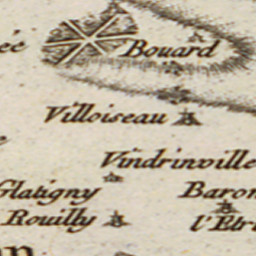 Bouard
Villoiseau
Vindrinville
Glatigny
Baron
Rouilly
l'Etr